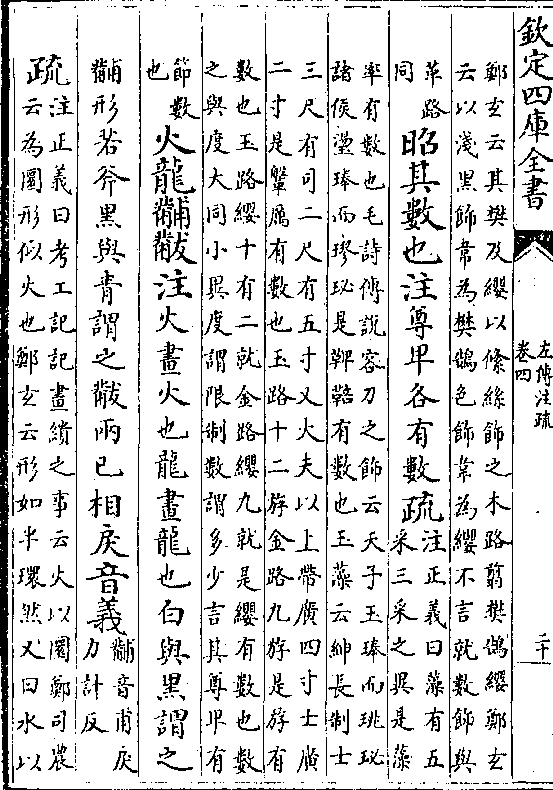 欽定四庫全書
左傳注疏
卷四
二十
鄭玄云其樊及纓以絛絲飾之木路翦樊鵠纓鄭玄
云以淺黑飾韋為樊鵠色飾韋為纓不言就數飾與
革路
同
昭其數也注尊卑各有數疏
注正義曰藻有五
采三采之異是藻
率有數也毛詩傳說容刀之飾云天子玉琫而珧珌
諸侯璗琫而璆珌是鞞鞛有數也玉藻云紳長制士
三尺有司二尺有五寸又大夫以上帶廣四寸士廣
二寸是鞶厲有數也玉路十二斿金路九斿是斿有
數也玉路纓十有二就金路纓九就是纓有數也數
之與度大同小異度謂限制數謂多少言其尊卑有
節數
也
火龍黼黻注火畫火也龍畫龍也白與黑謂之
黼形若斧黑與青謂之黻兩已相戾音義
黼音甫戾
力計反
疏
注正義曰考工記記畫繢之事云火以圜鄭司農
云為圜形似火也鄭玄云形如半環然又曰水以